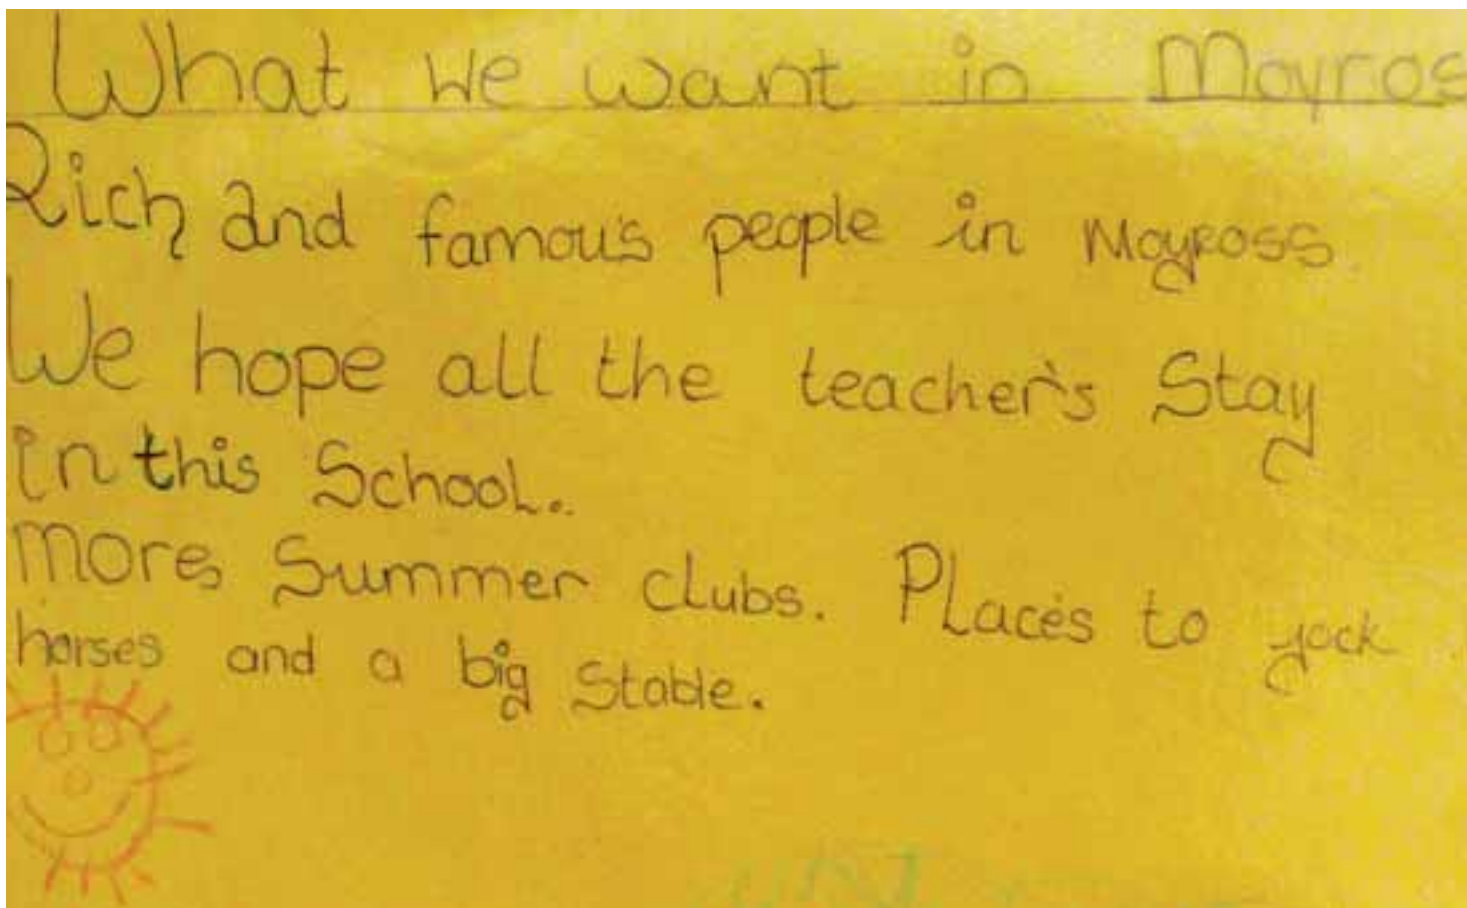 What we want in Moyros
Rich and famous people in Moyross.
We hope all the teacher's Stay
in this School.
More Summer clubs. Places to jock
horses and a big Stable.